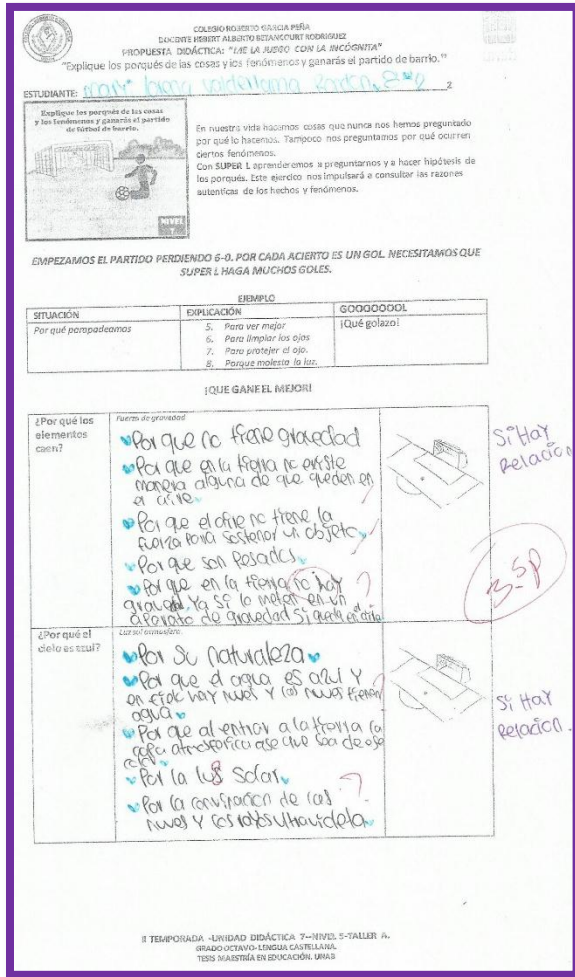 COLEGIO ROBERTO GARCIA PEÑA
DOCENTE HEBERT ALBERTO BETANCOURT RODRIGUEZ
PROPUESTA DIDÁCTICA: "ME LA JUEGO CON LA INCÓGNITA"
"Explique los porqués de las cosas y los fenómenos y ganarás el partido de barrio."
ESTUDIANTE: valderrama 2
Explique los porqués de las cosas
y los fenómenos y ganarás el partido
de fútbol de barrio.
NIVEL
En nuestra vida hacemos cosas que nunca nos hemos preguntado
por qué lo hacemos. Tampoco nos preguntamos por qué ocurren
ciertos fenómenos.
Con SUPER L aprenderemos a preguntarnos y a hacer hipótesis de
los porqués. Este ejercicio nos impulsará a consultar las razones
autenticas de los hechos y fenómenos.
EMPEZAMOS EL PARTIDO PERDIENDO 6-0. POR CADA ACIERTO ES UN GOL. NECESITAMOS QUE
SUPER L HAGA MUCHOS GOLES.
EJEMPLO
SITUACIÓN EXPLICACIÓN GOOOOOOOL
Por qué parpadeamos
5. Para ver mejor
6. Para limpiar los ojos
7. Para protejer el ojo.
8. Porque molesta la luz.
¡Qué golazo!
¡QUE GANE EL MEJOR!
¿Por qué los
elementos
caen?
Fuerza de gravedad
Por que no tiene gravedad
Por que en la tierra no existe
manera alguna de que queden en
el aire
Por que el aire no tiene la
fuerza para sostener un objeto
Por que son Pesados
Por que en la tierra no hay
Ya si lo meten en un
aparato de gravedad si queda en
Si Hay
Relación
3.5p
¿Por qué el
cielo es azul?
Luz sol atmosfera
Por Su naturaleza
Por que el agua es azul y
hay nuves Y las nuves tienen
agua
Por que al entrar a la tierra la
capa atmosferica ase que sea de ese
color
Por la lus Solar
Por la de las
nuves Y los rayos ultravioleta
Si Hay
Relación.
II TEMPORADA -UNIDAD DIDÁCTICA 7--NIVEL 5-TALLER A.
GRADO OCTAVO-LENGUA CASTELLANA.
TESIS MAESTRÍA EN EDUCACIÓN. UNAB